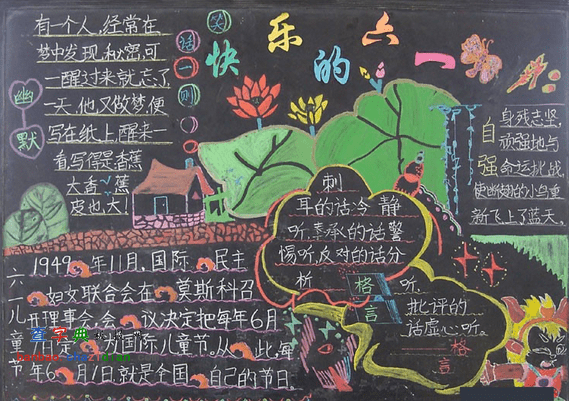 快乐的六一
笑话一则
幽默
有一个人,经常在
梦中发现秘密,可
一醒过来就忘了
一天,他又做梦,便
写在纸上,醒来一
看,写得是香蕉
大香蕉
皮也大!
自强
身残志坚,
顽强地与
命运挑战,
使断翅的小鸟重
新飞上了蓝天。
刺
耳的话冷静
听,奉承的话警
惕听,反对的话分
析听,
批评的
话虚心听。
格言
——格言
六一儿童节
1949年11月,国际民主
妇女联合会在莫斯科召
开理事会,会议决定把每年6月
1日为国际儿童节,从此,每
年6月1日就是全国自己的节日。
查字典